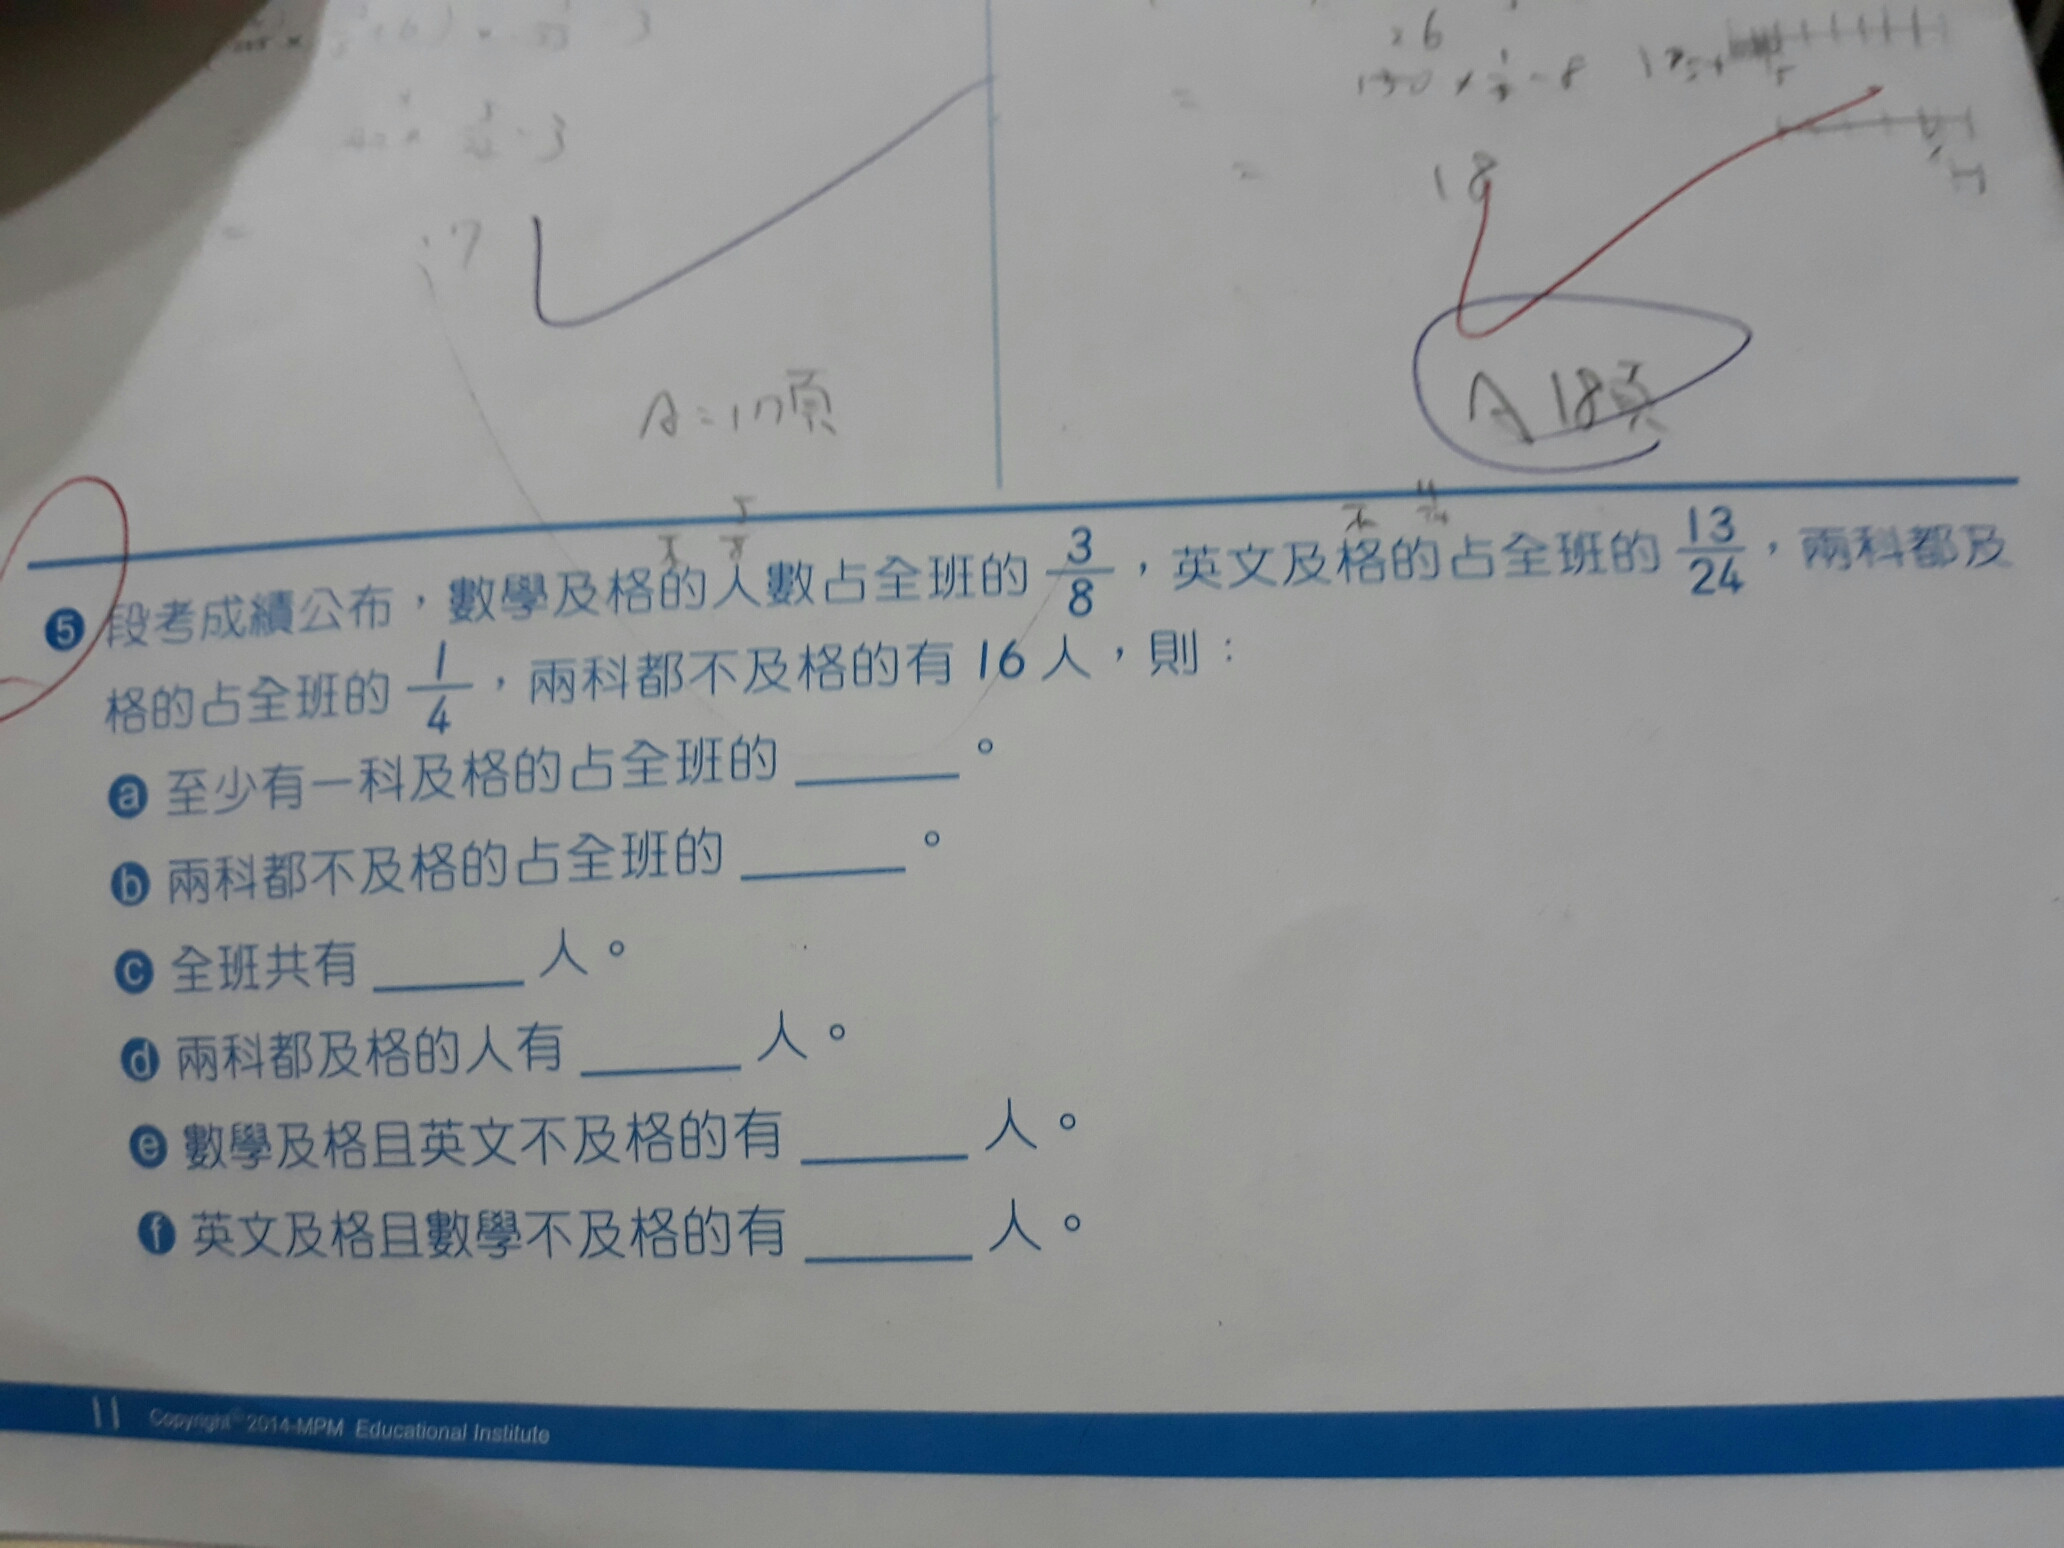 26
18
A=17頁
A 18頁
❺ 段考成績公布，數學及格的人數占全班的 3/8，英文及格的占全班的 13/24，兩科都及
格的占全班的 1/4，兩科都不及格的有 16 人，則：
ⓐ 至少有一科及格的占全班的 ______。
ⓑ 兩科都不及格的占全班的 ______。
ⓒ 全班共有 ______ 人。
ⓓ 兩科都及格的人有 ______ 人。
ⓔ 數學及格且英文不及格的有 ______ 人。
ⓕ 英文及格且數學不及格的有 ______ 人。
11 Copyright© 2014-MPM Educational Institute